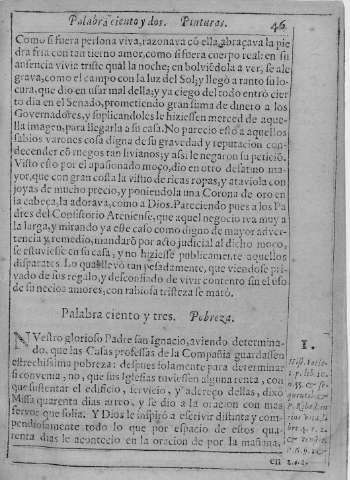 Palabra ciento y dos. Pinturas. 46
Como si fuera persona viva, razonava cõ ella, abraçava la pie
dra fria con tan tierno amor, como si fuera cuerpo real: en su
ausencia vivia triste qual la noche; en bolviédola a ver, se ale
grava, como el campo con la luz del Sol; y llegò a tanto su lo
cura, que dio en usar mal della; y ya ciego del todo entrò cier
to dia en el Senado, prometiendo gran suma de dinero a los
Governadores, y suplicandoles le hiziessen merced de aque-
lla imagen, para llegarla a su casa. No pareciò esto a aquellos
sabios varones cosa digna de su gravedad y reputacion con-
decender cõ ruegos tan livianos; y assi le negaron su peticiõ.
Visto esto por el apasionado moço, dio en otro desatino ma-
yor, que con gran costa la vistio de ricas ropas, y ataviola con
joyas de mucho precio, y poniendola una Corona de oro en
la cabeça, la adorava, como a Dios. Pareciendo pues a los Pa
dres del Consistorio Ateniense, que aquel negocio iva muy a
la larga, y mirando ya este caso como digno de mayor adver-
tencia y remedio, mandarõ por acto judicial al dicho moço,
se estuviesse en su casa, y no hiziesse publicamente aquellos
disparates. Lo qual llevò tan pesadamente, que viendose pri
vado de sus regalo, y desconfiado de vivir contento sin el uso
de su necios amores, con rabiosa tristeza se matò.
Palabra ciento y tres. Pobreza.
NVestro glorioso Padre san Ignacio, aviendo determina-
do, que las Casas professas de la Compañia guardassen
estrechissima pobreza: despues solamente para determinar
si convenia, no, que sus Iglesias tuviessen alguna renta, con
que sustentar el edificio, servicio, y aderezo dellas, dixo
Missa quarenta dias arreo, y se dio a la oracion con mas
fervor que solia. Y Dios le inspirò a escrivir distinta y com-
pendiosamente todo lo que por espacio de estos qua-
renta dias le acontecio en la oracion de por la mañana,
en
1.